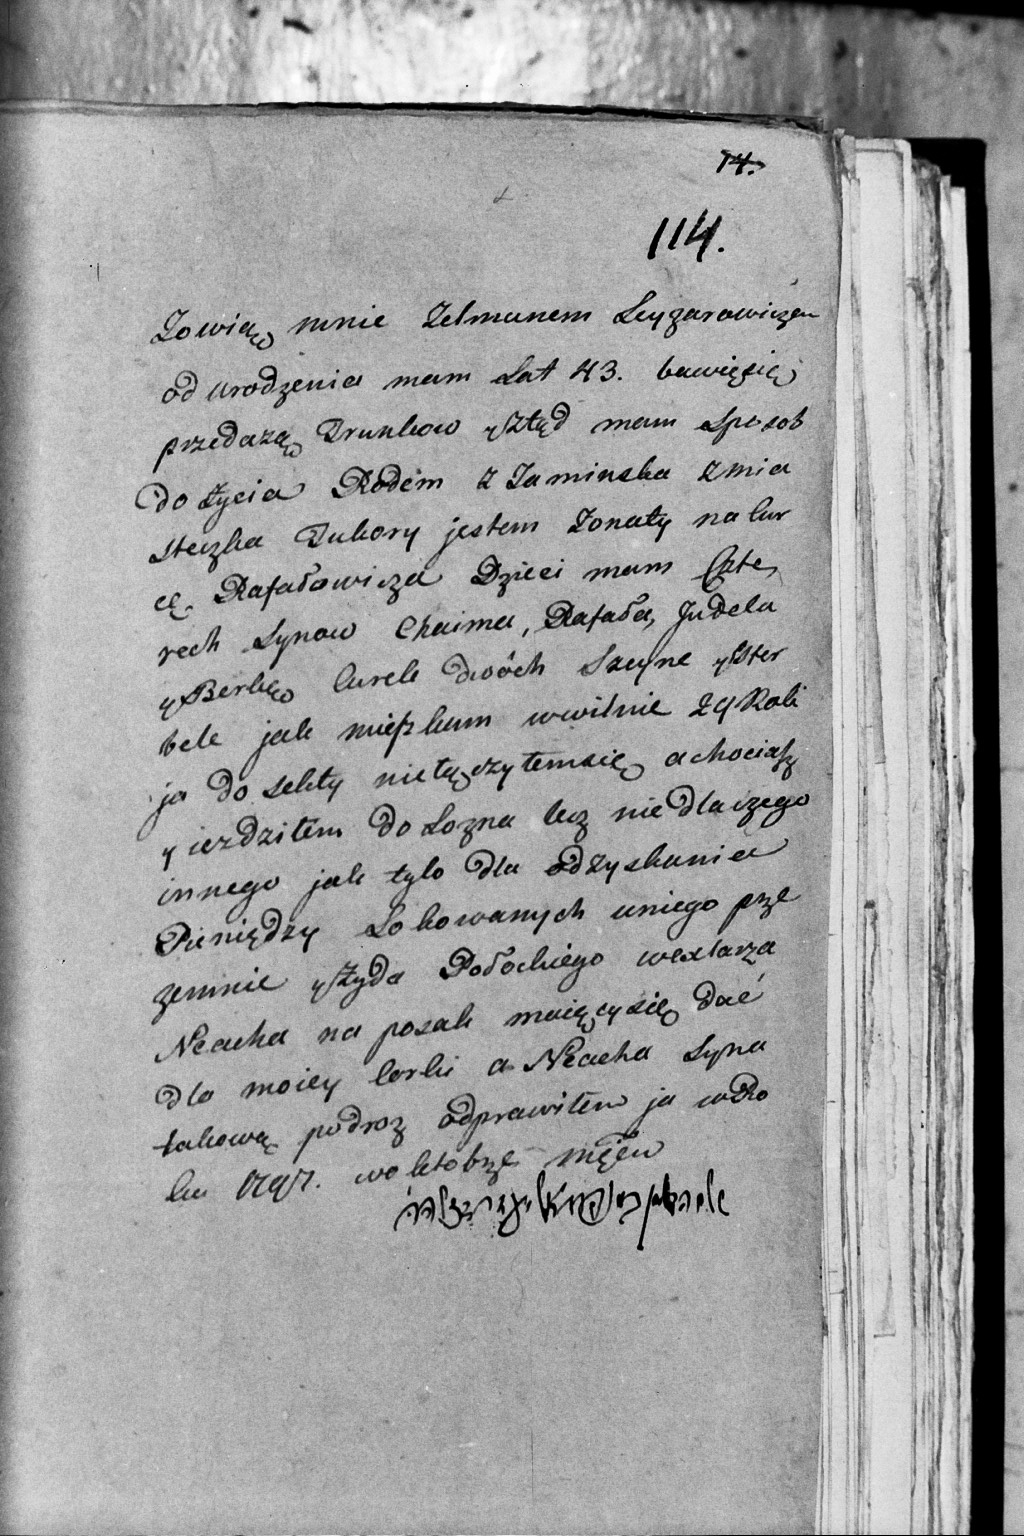 14.
114.
Zowią mnie Zelmanem Leyzarowiczem
od urodzenia mam Lat 43. bawięsię
przedazą Trunkow y ztąd mam Sposob
do życia Rodem z Zaminska z mia
steczka Dukory jestem Zonaty na Cur
ce Rafałowicza Dzieci mam Czte
rech Synow Chaima, Rafała, Judela
y Berkę Curek dwóch Szeyne y Ster
bele jak mieszkam wwilnie 29 Rok
ja do sekty nie łączyłemsię a chociasz
y iezdziłem do Lozna lecz nie dlaczego
innego jak tylo dla odzyskania
Pieniędzy Lokowanych uniego prze
zemnie y Żyda Połockiego wexlarza
Neacha na posah maięcysię dać
dla moiey Corki a Neacha Syna
takową podroz odprawiłem ja w Ro
ku 1797. woktobrze